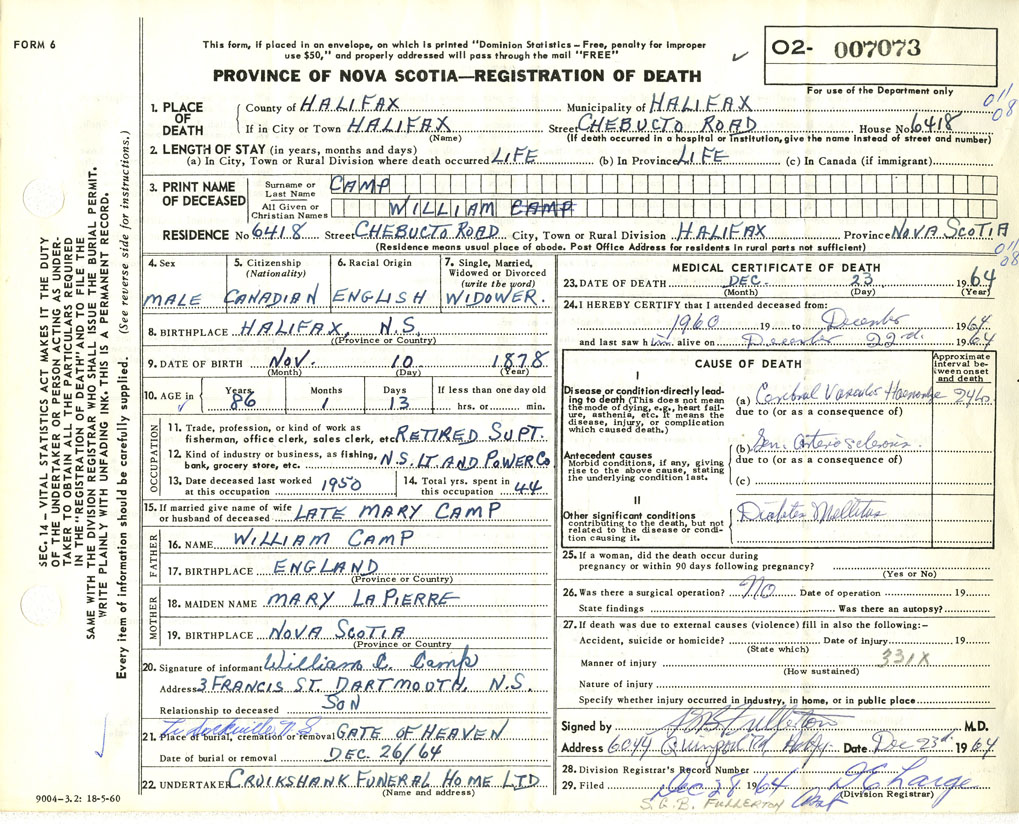 FORM 6
This form, if placed in an envelope, on which is printed "Dominion Statistics – Free, penalty for improper
use $50," and properly addressed will pass through the mail "FREE"
O2- 007073
For use of the Department only
PROVINCE OF NOVA SCOTIA—REGISTRATION OF DEATH
011
08
1. PLACE OF DEATH County of HALIFAX Municipality of HALIFAX
If in City or Town HALIFAX (Name) Street CHEBUCTO ROAD House No. 6418
(If death occurred in a hospital or institution, give the name instead of street and number)
2. LENGTH OF STAY (in years, months and days)
(a) In City, Town or Rural Division where death occurred LIFE (b) In Province LIFE (c) In Canada (if immigrant)
3. PRINT NAME OF DECEASED
Surname or Last Name CAMP
All Given or Christian Names WILLIAM CAMP
RESIDENCE No 6418 Street CHEBUCTO ROAD City, Town or Rural Division HALIFAX Province NOVA SCOTIA
(Residence means usual place of abode. Post Office Address for residents in rural parts not sufficient)
011
08
4. Sex MALE
5. Citizenship (Nationality) CANADIAN
6. Racial Origin ENGLISH
7. Single, Married, Widowed or Divorced (write the word) WIDOWER.
8. BIRTHPLACE HALIFAX, N.S.
(Province or Country)
9. DATE OF BIRTH NOV. 10 1878
(Month) (Day) (Year)
10. AGE in Years 86 Months 1 Days 13 If less than one day old hrs. or min.
OCCUPATION
11. Trade, profession, or kind of work as
fisherman, office clerk, sales clerk, etc. RETIRED SUPT.
12. Kind of industry or business, as fishing,
bank, grocery store, etc. N.S. LT. AND POWER CO
13. Date deceased last worked at this occupation 1950
14. Total yrs. spent in this occupation 44
15. If married give name of wife
or husband of deceased LATE MARY CAMP
FATHER
16. NAME WILLIAM CAMP
17. BIRTHPLACE ENGLAND
(Province or Country)
MOTHER
18. MAIDEN NAME MARY LAPIERRE
19. BIRTHPLACE NOVA SCOTIA
(Province or Country)
20. Signature of informant William C. Camp
Address 3 FRANCIS ST. DARTMOUTH, N.S.
Relationship to deceased SON
Sackville N.S.
21. Place of burial, cremation or removal GATE OF HEAVEN
Date of burial or removal DEC. 26/64
22. UNDERTAKER CRUIKSHANK FUNERAL HOME LTD
(Name and address)
MEDICAL CERTIFICATE OF DEATH
23. DATE OF DEATH DEC. 23 1964
(Month) (Day) (Year)
24. I HEREBY CERTIFY that I attended deceased from:
1960 19 to December 1964
and last saw him alive on December 22nd. 1964
CAUSE OF DEATH
Approximate interval between onset and death
I
Disease or condition directly leading to death (This does not mean the mode of dying, e.g., heart failure, asthenia, etc. It means the disease, injury, or complication which caused death.)
(a) Cerebral Vascular Haemorrhage 24 hrs
due to (or as a consequence of)
Antecedent causes
Morbid conditions, if any, giving rise to the above cause, stating the underlying condition last.
(b) Gen. Arteriosclerosis.
due to (or as a consequence of)
(c)
II
Other significant conditions
contributing to the death, but not related to the disease or condition causing it.
Diabetes Mellitus
25. If a woman, did the death occur during
pregnancy or within 90 days following pregnancy?
(Yes or No)
26. Was there a surgical operation? NO Date of operation 19
State findings Was there an autopsy?
27. If death was due to external causes (violence) fill in also the following:–
Accident, suicide or homicide? Date of injury 19
(State which)
331X
Manner of injury
(How sustained)
Nature of injury
Specify whether injury occurred in industry, in home, or in public place
Signed by SGB Fullerton M.D.
Address 6044 Quinpool Rd Date Dec 23d. 1964
28. Division Registrar's Record Number
29. Filed Dec 28 1964 Large
(Division Registrar)
S.G.B. FULLERTON
9004-3.2: 18-5-60
SEC. 14 – VITAL STATISTICS ACT MAKES IT THE DUTY
OF THE UNDERTAKER OR PERSON ACTING AS UNDER-
TAKER TO OBTAIN ALL THE PARTICULARS REQUIRED
IN THE "REGISTRATION OF DEATH" AND TO FILE THE
SAME WITH THE DIVISION REGISTRAR WHO SHALL ISSUE THE BURIAL PERMIT.
WRITE PLAINLY WITH UNFADING INK. THIS IS A PERMANENT RECORD.
Every item of information should be carefully supplied. (See reverse side for instructions.)